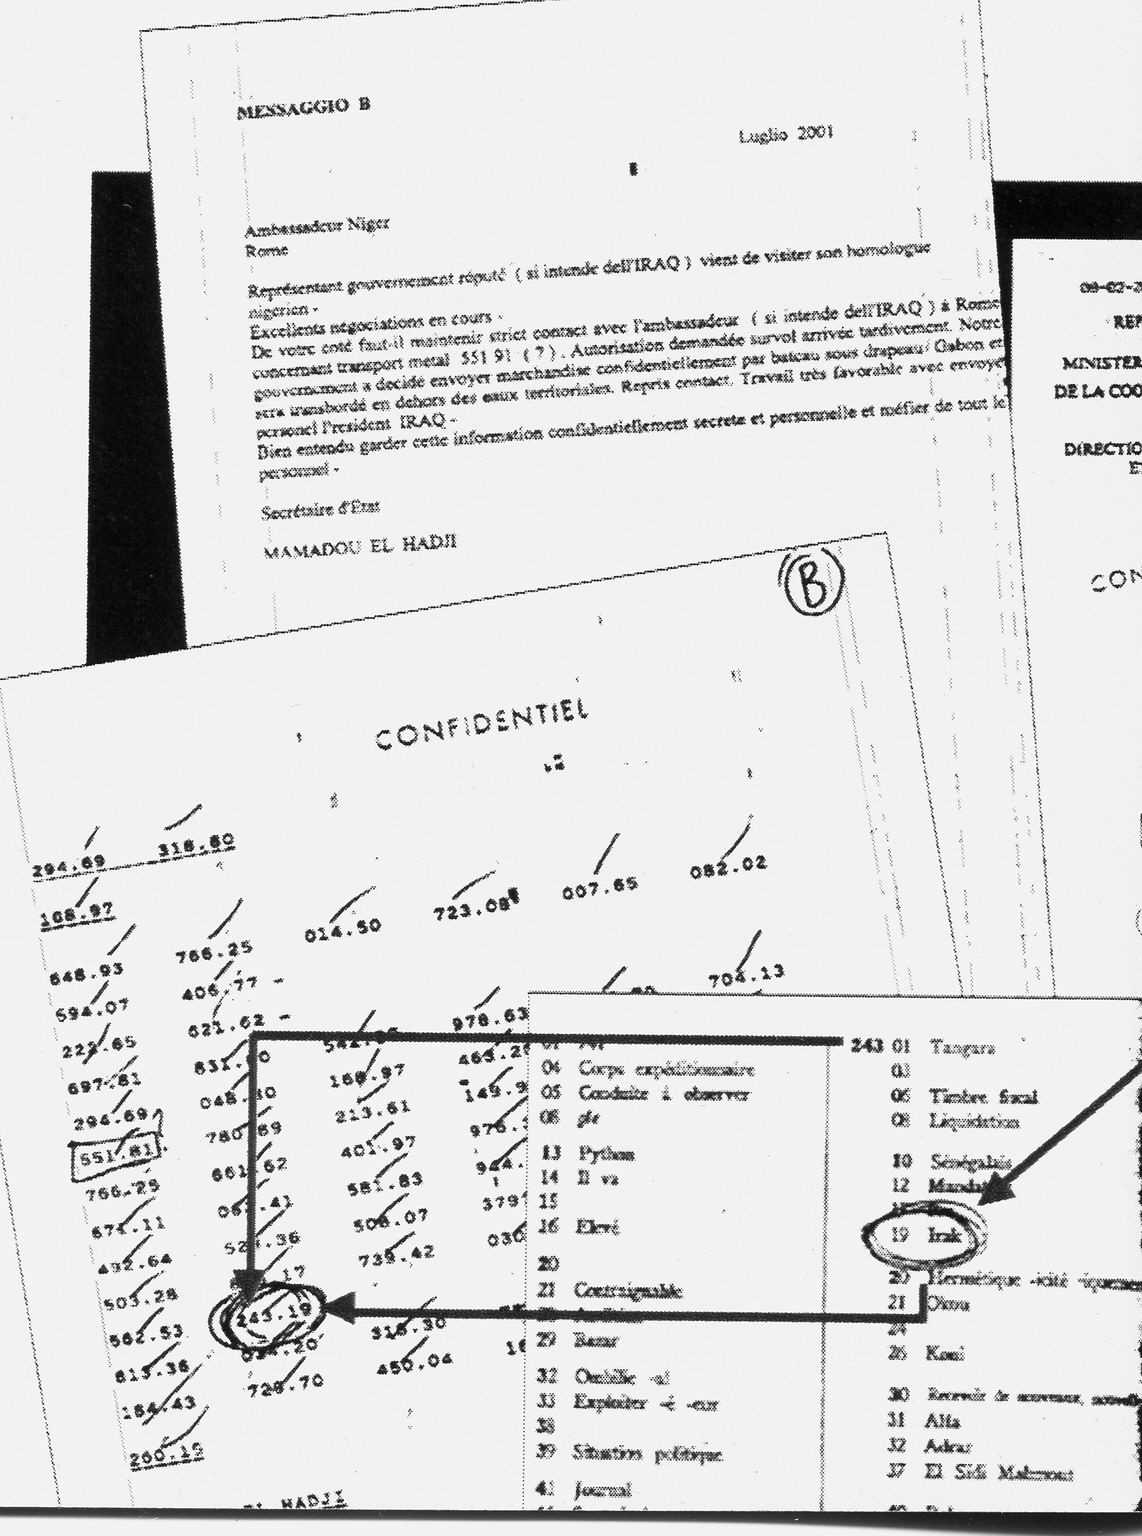 MESSAGGIO B
Luglio 2001
Ambassadeur Niger
Rome
Représentant gouvernement réputé ( si intende dell'IRAQ ) vient de visiter son homologue
nigerien -
Excellents négociations en cours -
De votre coté faut-il maintenir strict contact avec l'ambassadeur ( si intende dell'IRAQ ) à Rome
concernant transport metal 551 91 ( ? ) . Autorisation demandée survol arrivée tardivement. Notre
gouvernement a decidé envoyer marchandise confidentiellement par bateau sous drapeau Gabon et
sera transbordé en dehors des eaux territoriales. Repris contact. Travail très favorable avec envoye
personel l'President IRAQ -
Bien entendu garder cette information confidentiellement secrete et personnelle et méfier de tout le
personnel -
Secrétaire d'Etat
MAMADOU EL HADJI
REP
MINISTER
DE LA COO
DIRECTIO
CON
B
CONFIDENTIEL
294.69 318.80
168.97
648.93 766.25 014.50 723.08 007.65 082.02
594.07 406.77 - 704.13
222.65 621.62 - 978.63
697.81 831. 0 469.2
294.69 048. 0 168.97 149.9
551.81 780. 69 213.61 976.
766.25 661. 62 401.97 944.
674.11 06 .41 581.83 379
492.64 52 .36 506.07 030
503.28 17 739.42
562.53 243.19
613.36 .20 316.30
184.43 728.70 450.04
260.19
HADJI
04 Corps expéditionnaire
05 Conduite à observer
08
13 Python
14 Il va
15
16 Elevé
20
21 Contraignable
29 Bazar
32
33 Exploiter -é -eur
38
39 Situation politique
41 Journal
243 01 Tangara
03
06 Timbre fiscal
08 Liquidation
10 Sénégalais
12 Mandat
19 Irak
20 Hermétique -icité -iquement
21
24
26 Koni
30 Recevoir de nouveaux,
31 Alfa
32 Adrar
37 El Sidi Mahmout